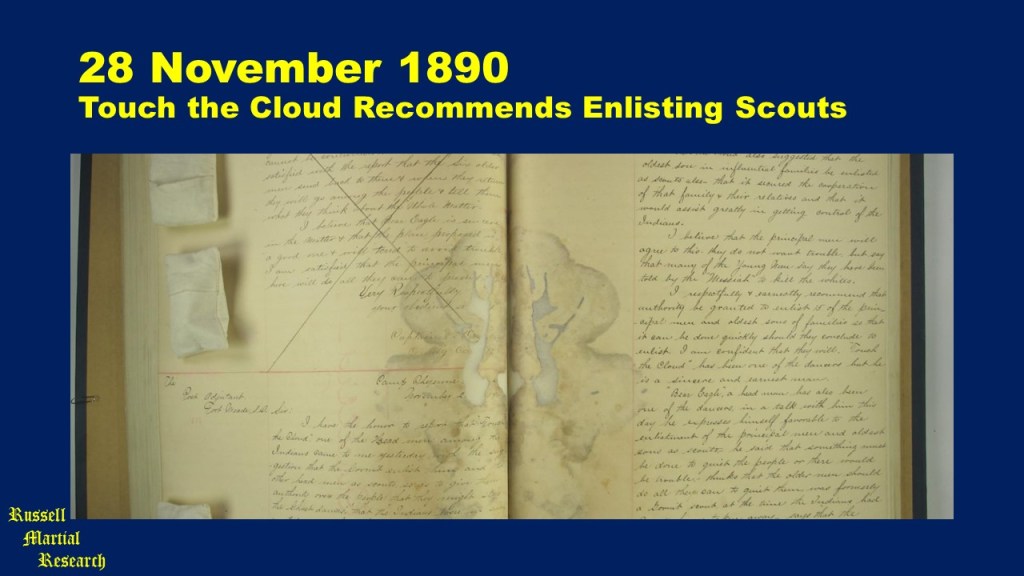 28 November 1890
Touch the Cloud Recommends Enlisting Scouts
satisfied with the report that the
men send back to them & when they return
they will go among the people & tell them
what they think about the whole matter.
I believe that
in the matter & that the plan proposed is
a good one & will tend to avoid trouble
I am satisfied that the principal men
here will do all they
Very Respectfully
Your
Captain
To
Post Adjutant
Fort Meade, S.D. Sir:
Camp Cheyenne
November
I have the honor to report that "Touch
the Cloud" one of the Head men among the
Indians came to me yesterday with the sug-
gestion that the Government enlist him and
other head men as scouts so as to give them
authority over the people that they might stop
the Ghost dance, that the Indians
also suggested that the
oldest son in influential families be enlisted
as scouts also that it secured the cooperation
of that family & their relatives and that it
would assist greatly in getting control of the
Indians.
I believe that the principal men will
agree to this they do not want trouble but say
that many of the Young Men say they have been
told by the "Messiah" to kill the whites.
I respectfully & earnestly recommend that
authority be granted to enlist 15 of the prin-
cipal men and oldest sons of families so that
it can be done quickly should they conclude to
enlist. I am confident that they will. "Touch
the Cloud" has been one of the dancers but he
is a sincere and earnest man.
"Bear Eagle", a head man has also been
one of the dancers in a talk with him this
day he expresses himself favorable to the
enlistment of the principal men and oldest
sons as scouts. he said that something must
be done to quiet the people or there would
be trouble. thinks that the older men should
do all they can to quiet them. was formerly
a Scout at the time the Indians had
says that the
Russell
Martial
Research